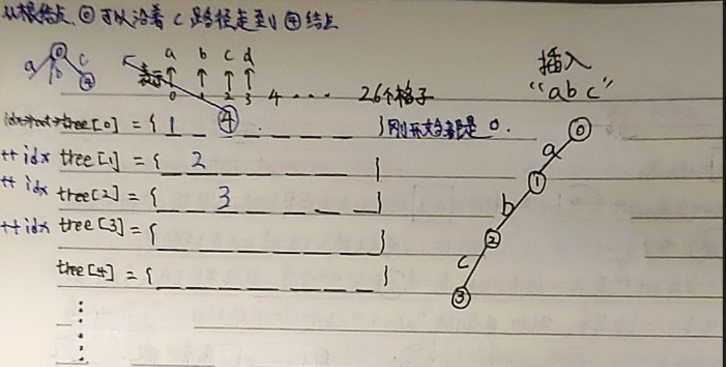 从根结点 0 可以沿着 c 路径走到 4 结点
a b c 0 4
a b c d
表示 ↑ ↑ ↑ ↑
0 1 2 3 4 ···· 26个格子
插入
"abc"
tree[0] = { 1 _ 4 _ _ _ _ } 刚开始都是 0.
++idx tree[1] = { _ 2 _ _ _ _ _ }
++idx tree[2] = { _ _ 3 _ _ _ _ }
++idx tree[3] = { _ _ _ _ _ _ _ }
tree[4] = { _ _ _ _ _ _ _ }
0
a
1
b
2
c
3